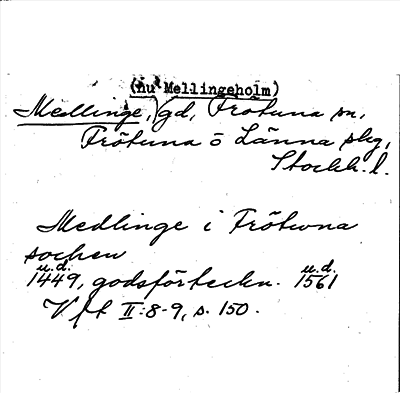 (nu Mellingeholm)
Medlinge, gd, Frötuna sn,
Frötuna o Länna skg,
Stockh. l.
Medlinge i Frötuna
sochen
u.d. u.d.
1449, godsförteckn. 1561
Vfl II:8-9, s. 150.